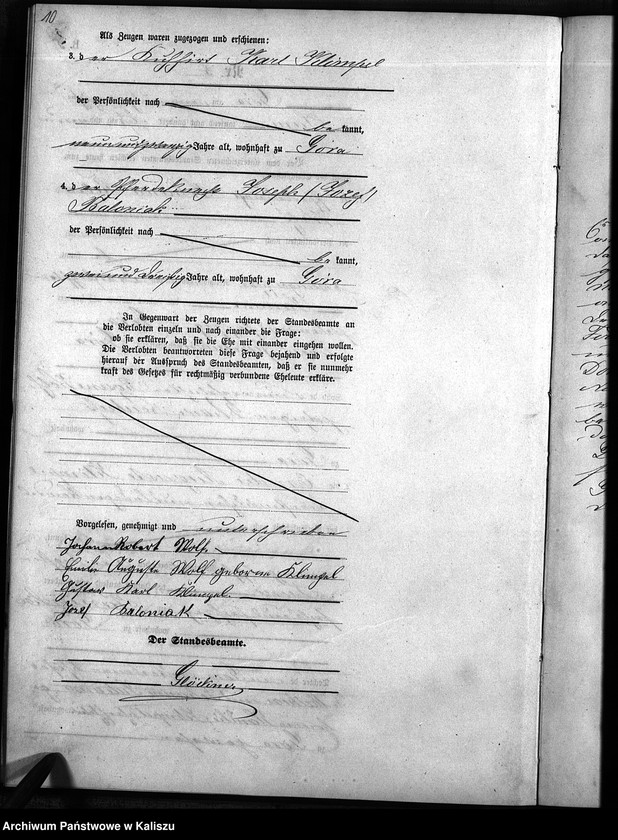 10
Als Zeugen waren zugezogen und erschienen:
3. der Kuhhirt Karl Klimpel
der Persönlichkeit nach
bekannt,
neunundzwanzig Jahre alt, wohnhaft zu Gora
4. der Pferdeknecht Joseph (Jozef)
Baloniak
der Persönlichkeit nach
bekannt,
zweiunddreißig Jahre alt, wohnhaft zu Góra
In Gegenwart der Zeugen richtete der Standesbeamte an
die Verlobten einzeln und nach einander die Frage:
ob sie erklären, daß sie die Ehe mit einander eingehen wollen.
Die Verlobten beantworteten diese Frage bejahend und erfolgte
hierauf der Ausspruch des Standesbeamten, daß er sie nunmehr
kraft des Gesetzes für rechtmäßig verbundene Eheleute erkläre.
Vorgelesen, genehmigt und unterschrieben
Johann Robert Wolf
Emilie Auguste Wolf geborene Klimpel
Gustav Karl Klimpel
Jozef Baloniak
Der Standesbeamte.
Archiwum Państwowe w Kaliszu